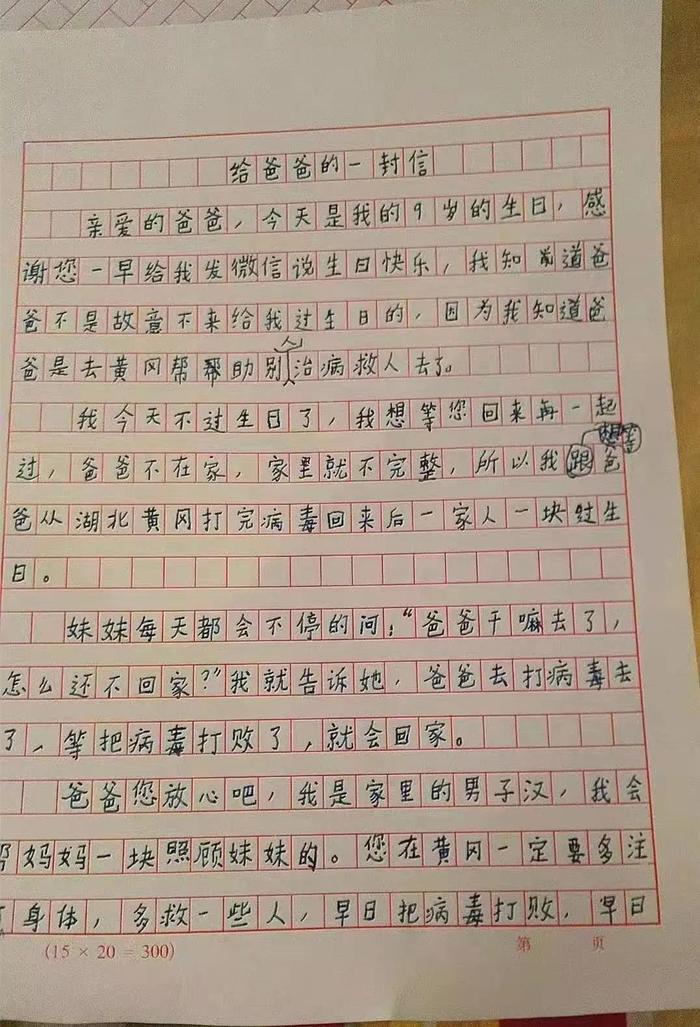 给爸爸的一封信
亲爱的爸爸，今天是我的9岁的生日，感
谢您一早给我发微信说生日快乐，我知道爸
爸不是故意不来给我过生日的，因为我知道爸
爸是去黄冈帮帮助别人治病救人去了。
我今天不过生日了，我想等您回来再一起
过，爸爸不在家，家里就不完整，所以我想等爸
爸从湖北黄冈打完病毒回来后一家人一块过生
日。
妹妹每天都会不停的问：“爸爸干嘛去了，
怎么还不回家？”我就告诉她，爸爸去打病毒去
了，等把病毒打败了，就会回家。
爸爸您放心吧，我是家里的男子汉，我会
帮妈妈一块照顾妹妹的。您在黄冈一定要多注
身体，多救一些人，早日把病毒打败，早日
(15 × 20 = 300)
第 页